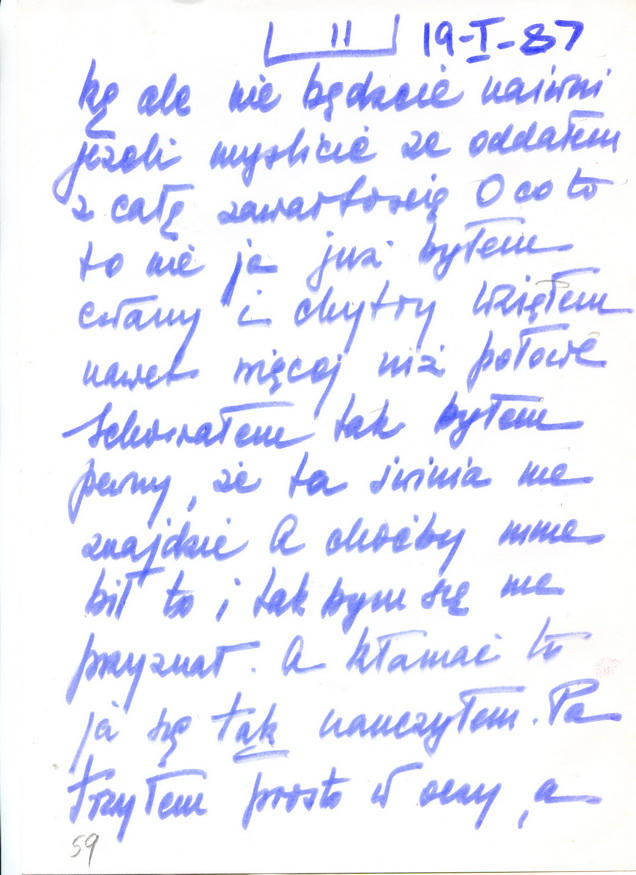 11 19-I-87
kę ale nie będzcie naiwni
jeżeli myślicie że oddałem
z całą zawartością O co to
to nie ja już byłem
cwany i chytry wziąłem
nawet więcej niż połowę
Schowałem tak byłem
pewny, że ta świnia nie
znajdzie A choćby mnie
bił to i tak bym się nie
przyznał. A kłamać to
ja się tak nauczyłem. Pa
trzyłem prosto w oczy, a
59